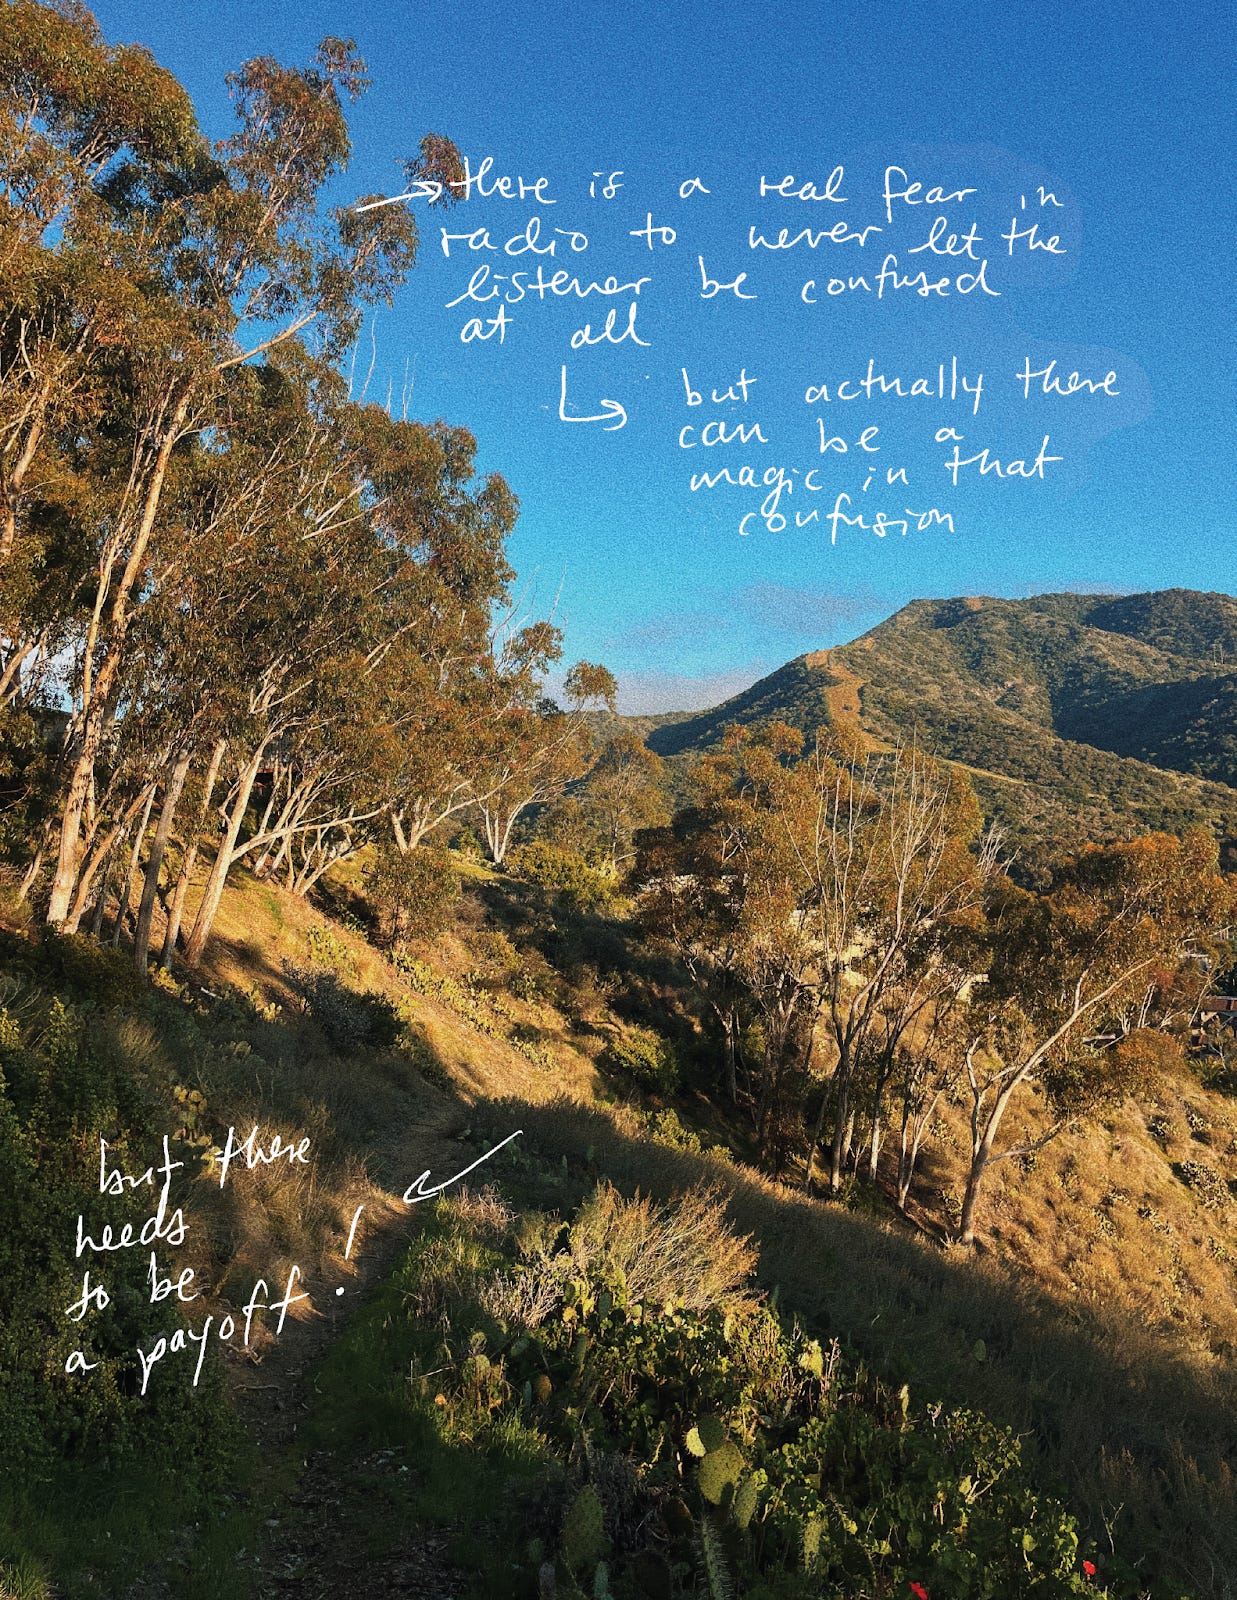 there is a real fear in
radio to never let the
listener be confused
at all
but actually there
can be a
magic in that
confusion
but there
needs
to be
a payoff!